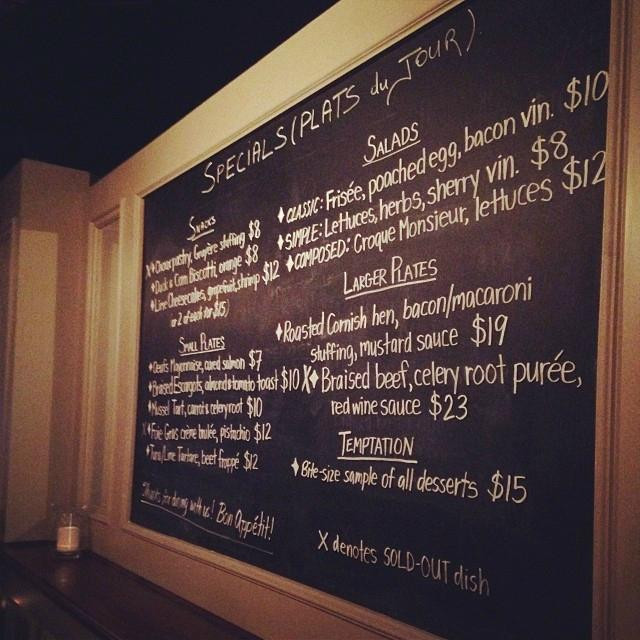 SPECIALS (PLATS du JOUR)
SNACKS
X♦Choux pastry, Gruyère stuffing $8
♦Duck & Corn Biscotti, orange $8
♦Lime Cheesecakes, grapefruit, shrimp $12
(or 2 of each for $15)
SMALL PLATES
♦Oeufs Mayonnaise, cured salmon $7
♦Braised Escargots, almond & tomato toast $10
♦Mussel Tart, carrot & celery root $10
X♦Foie Gras crème brulée, pistachio $12
♦Tuna/Lime Tartare, beef frappé $12
Thanks for dining with us! Bon Appétit!
SALADS
♦CLASSIC: Frisée, poached egg, bacon vin. $10
♦SIMPLE: Lettuces, herbs, sherry vin. $8
♦COMPOSED: Croque Monsieur, lettuces $12
LARGER PLATES
♦Roasted Cornish hen, bacon/macaroni
stuffing, mustard sauce $19
X♦Braised beef, celery root purée,
red wine sauce $23
TEMPTATION
♦Bite-size sample of all desserts $15
X denotes SOLD-OUT dish